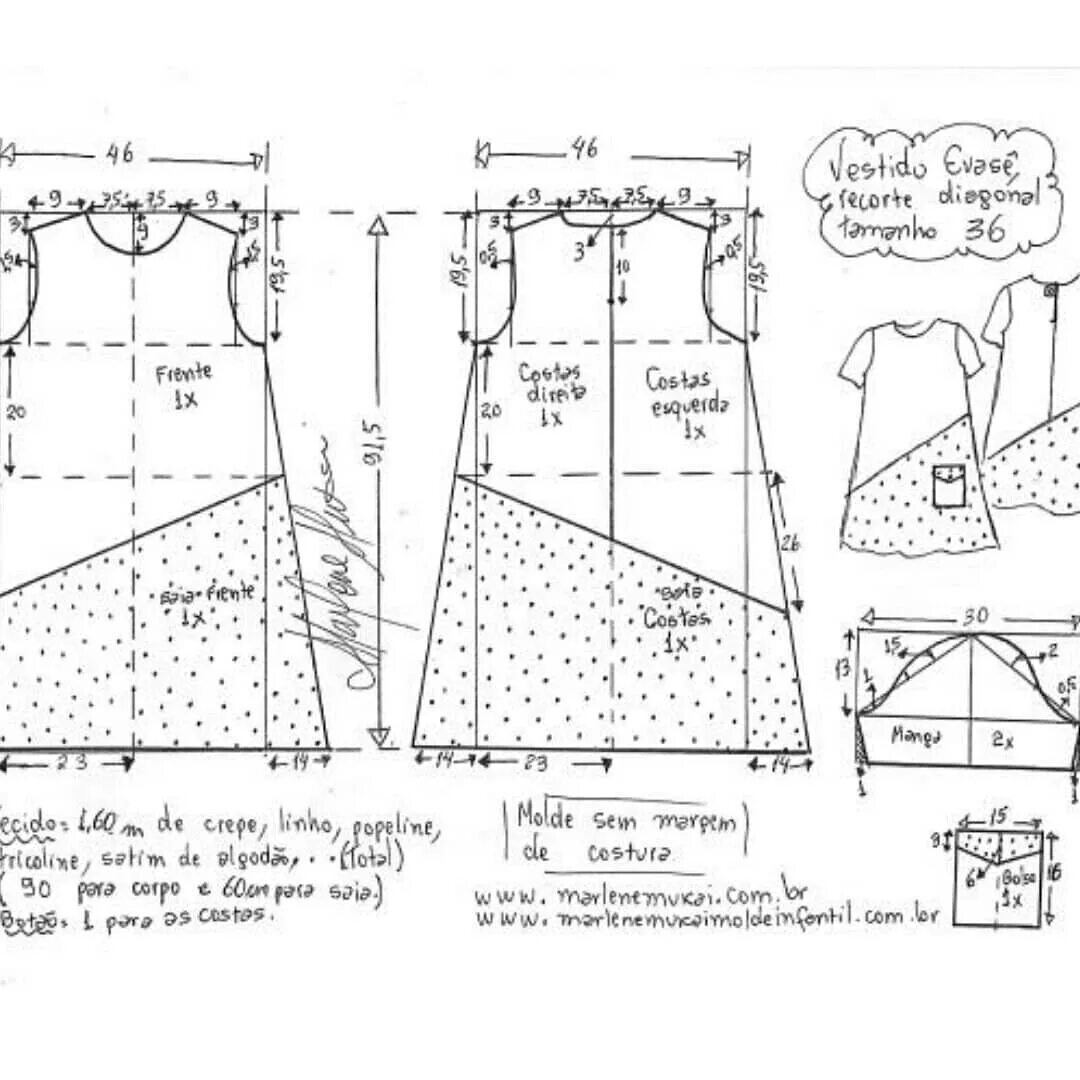 46
46
Vestido Evasê,
recorte diagonal
tamanho 36
9 7,5 7,5 9
9 7,5 7,5 9
3
9
3
19,5
3
3
10
3
19,5
0,5
0,5
19,5
Frente
1x
20
91,5
Costas
direita
1x
Costas
esquerda
1x
20
26
saia frente
1x
saia
Costas
1x
23
14
14
23
14
30
13
15
2
1
0,5
Manga 2x
1
1
15
9
6
Bolso
1x
16
ecido = 1,60 m de crepe, linho, popeline,
ricoline, satim de algodão, . . . (Total)
( 90 para corpo e 60cm para saia.)
Botão = 1 para as costas.
Molde sem margem
de costura
www. marlenemukai.com.br
www. marlenemukaimoldeinfantil.com.br